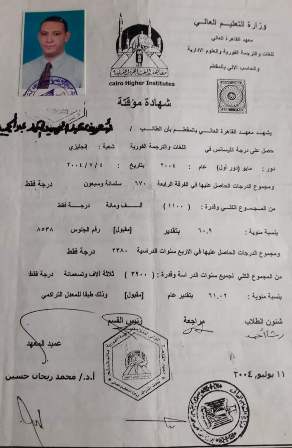 وزارة التعليم العالي
معهد القاهرة العالي
للغات والترجمة الفورية والعلوم الادارية
والحاسب الآلى بالمقطم
cairo Higher Institutes
شهادة مؤقتة
يشهد معهد القاهرة العالي بالمقطم بأن الطالب /
حصل على درجة الليسانس في اللغات والترجمة الفورية شعبة : إنجليزي
دور : مايو (دور أول) عام : ٢٠٠٤ بتاريخ : ٢٠٠٤ / ٧ / ٤
ومجموع الدرجات الحاصل عليها في الفرقة الرابعة ٦٧٠ ستمائة وسبعون درجة فقط
من المجموع الكلي وقدرة ( ١١٠٠ ) ألف ومائة درجة فقط
بنسبة مئوية : ٦٠,٩ بتقدير [مقبول] رقم الجلوس ٨٥٣٨
ومجموع الدرجات الحاصل عليها في الاربع سنوات الدراسية ٢٣٨٠ درجة فقط
من المجموع الكلي لجميع سنوات الدراسة وقدرة ( ٣٩٠٠ ) ثلاثة آلاف وتسعمائة درجة فقط
بنسبة مئوية : ٦١,٠٢ بتقدير عام [مقبول] وذلك طبقا للمعدل التراكمي
شئون الطلاب مراجعة رئيس القسم عميد المعهد
أ.د/ محمد ريحان حسين
١١ يوليو, ٢٠٠٤